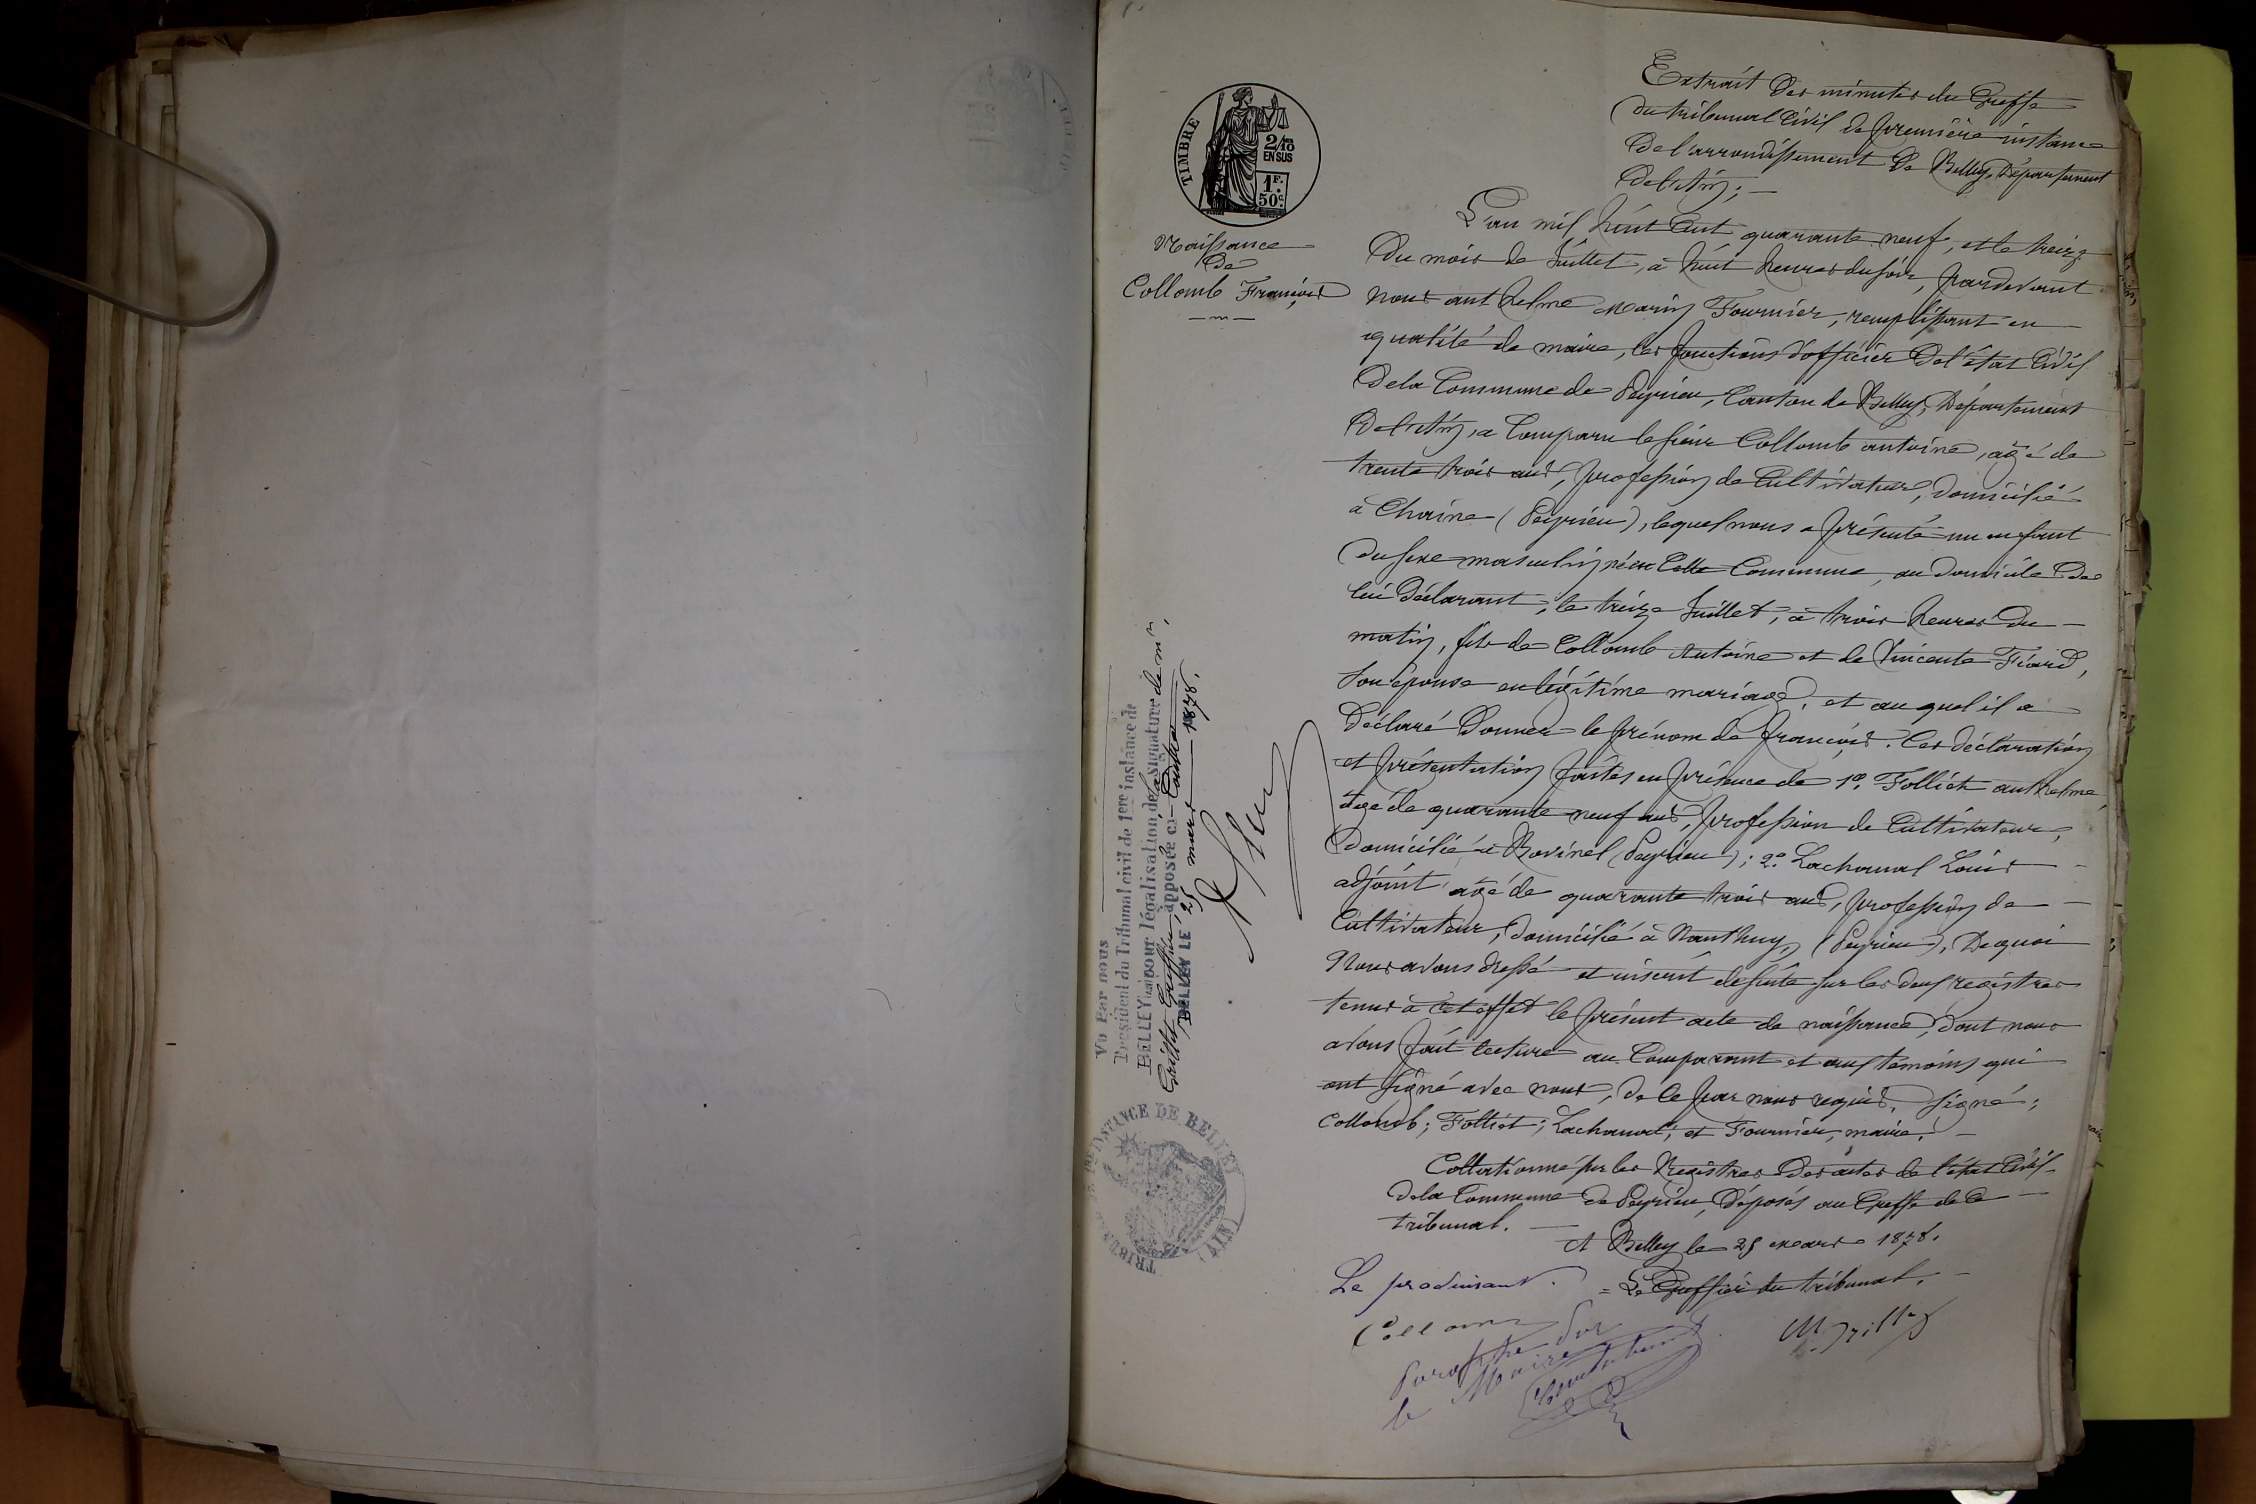 Extrait des minutes du Greffe
du tribunal Civil de première instance
de l'arrondissement de Belley, Département
de l'Ain; —
TIMBRE
2/10
EN SUS
1F.
50c.
Naissance
de
Collomb François
L'an mil huit cent quarante neuf, et le treize
du mois de Juillet, à huit heures du soir, pardevant
nous anthelme Marin Fournier, remplissant en
qualité de maire, les fonctions d'officier de l'état Civil
de la Commune de Peyrieu, Canton de Belley, Département
de l'Ain, a Comparu le sieur Collomb antoine, âgé de
trente trois ans, profession de Cultivateur, domicilié
à Chaine (Peyrieu), lequel nous a présenté un enfant
du sexe masculin né en Cette Commune, au domicile de
lui Déclarant, le treize Juillet, à trois heures du
matin, fils de Collomb Antoine et de Vincente Féard,
son épouse en légitime mariage, et au quel il a
Déclaré Donner le prénom de françois. Ces déclaration
et présentation faites en présence de 1º. Folliet anthelme,
âgé de quarante neuf ans, profession de Cultivateur,
Domicilié à Rovinel (Peyrieu); 2º. Lachanal Louis
adjoint âgé de quarante trois ans, profession de
Cultivateur, domicilié à Nanthuy, (Peyrieu), De quoi
Nous avons dressé et inscrit de suite sur les deux registres
tenus à cet effet le présent acte de naissance, dont nous
avons fait lecture au Comparant et aux témoins qui
ont signé avec nous, de Ce par nous requis. Signé:
Collomb; Folliet; Lachanal; et Fournier, maire. —
Collationné sur les Registres des actes de l'état Civil
de la Commune de Peyrieu, Déposés au Greffe de Ce
tribunal. —
A Belley le 25 mars 1878.
Le produisant.
= Le Greffier du tribunal. —
Collomb
Paraphe par
le Maire
Vu Par nous
Président du Tribunal civil de 1ere instance de
BELLEY (Ain) pour légalisation de la signature de mr.
Grillet Greffier, apposée ci-contre
BELLEY LE 25 mars 1878.
TRIBUNAL DE 1RE INSTANCE DE BELLEY (AIN)